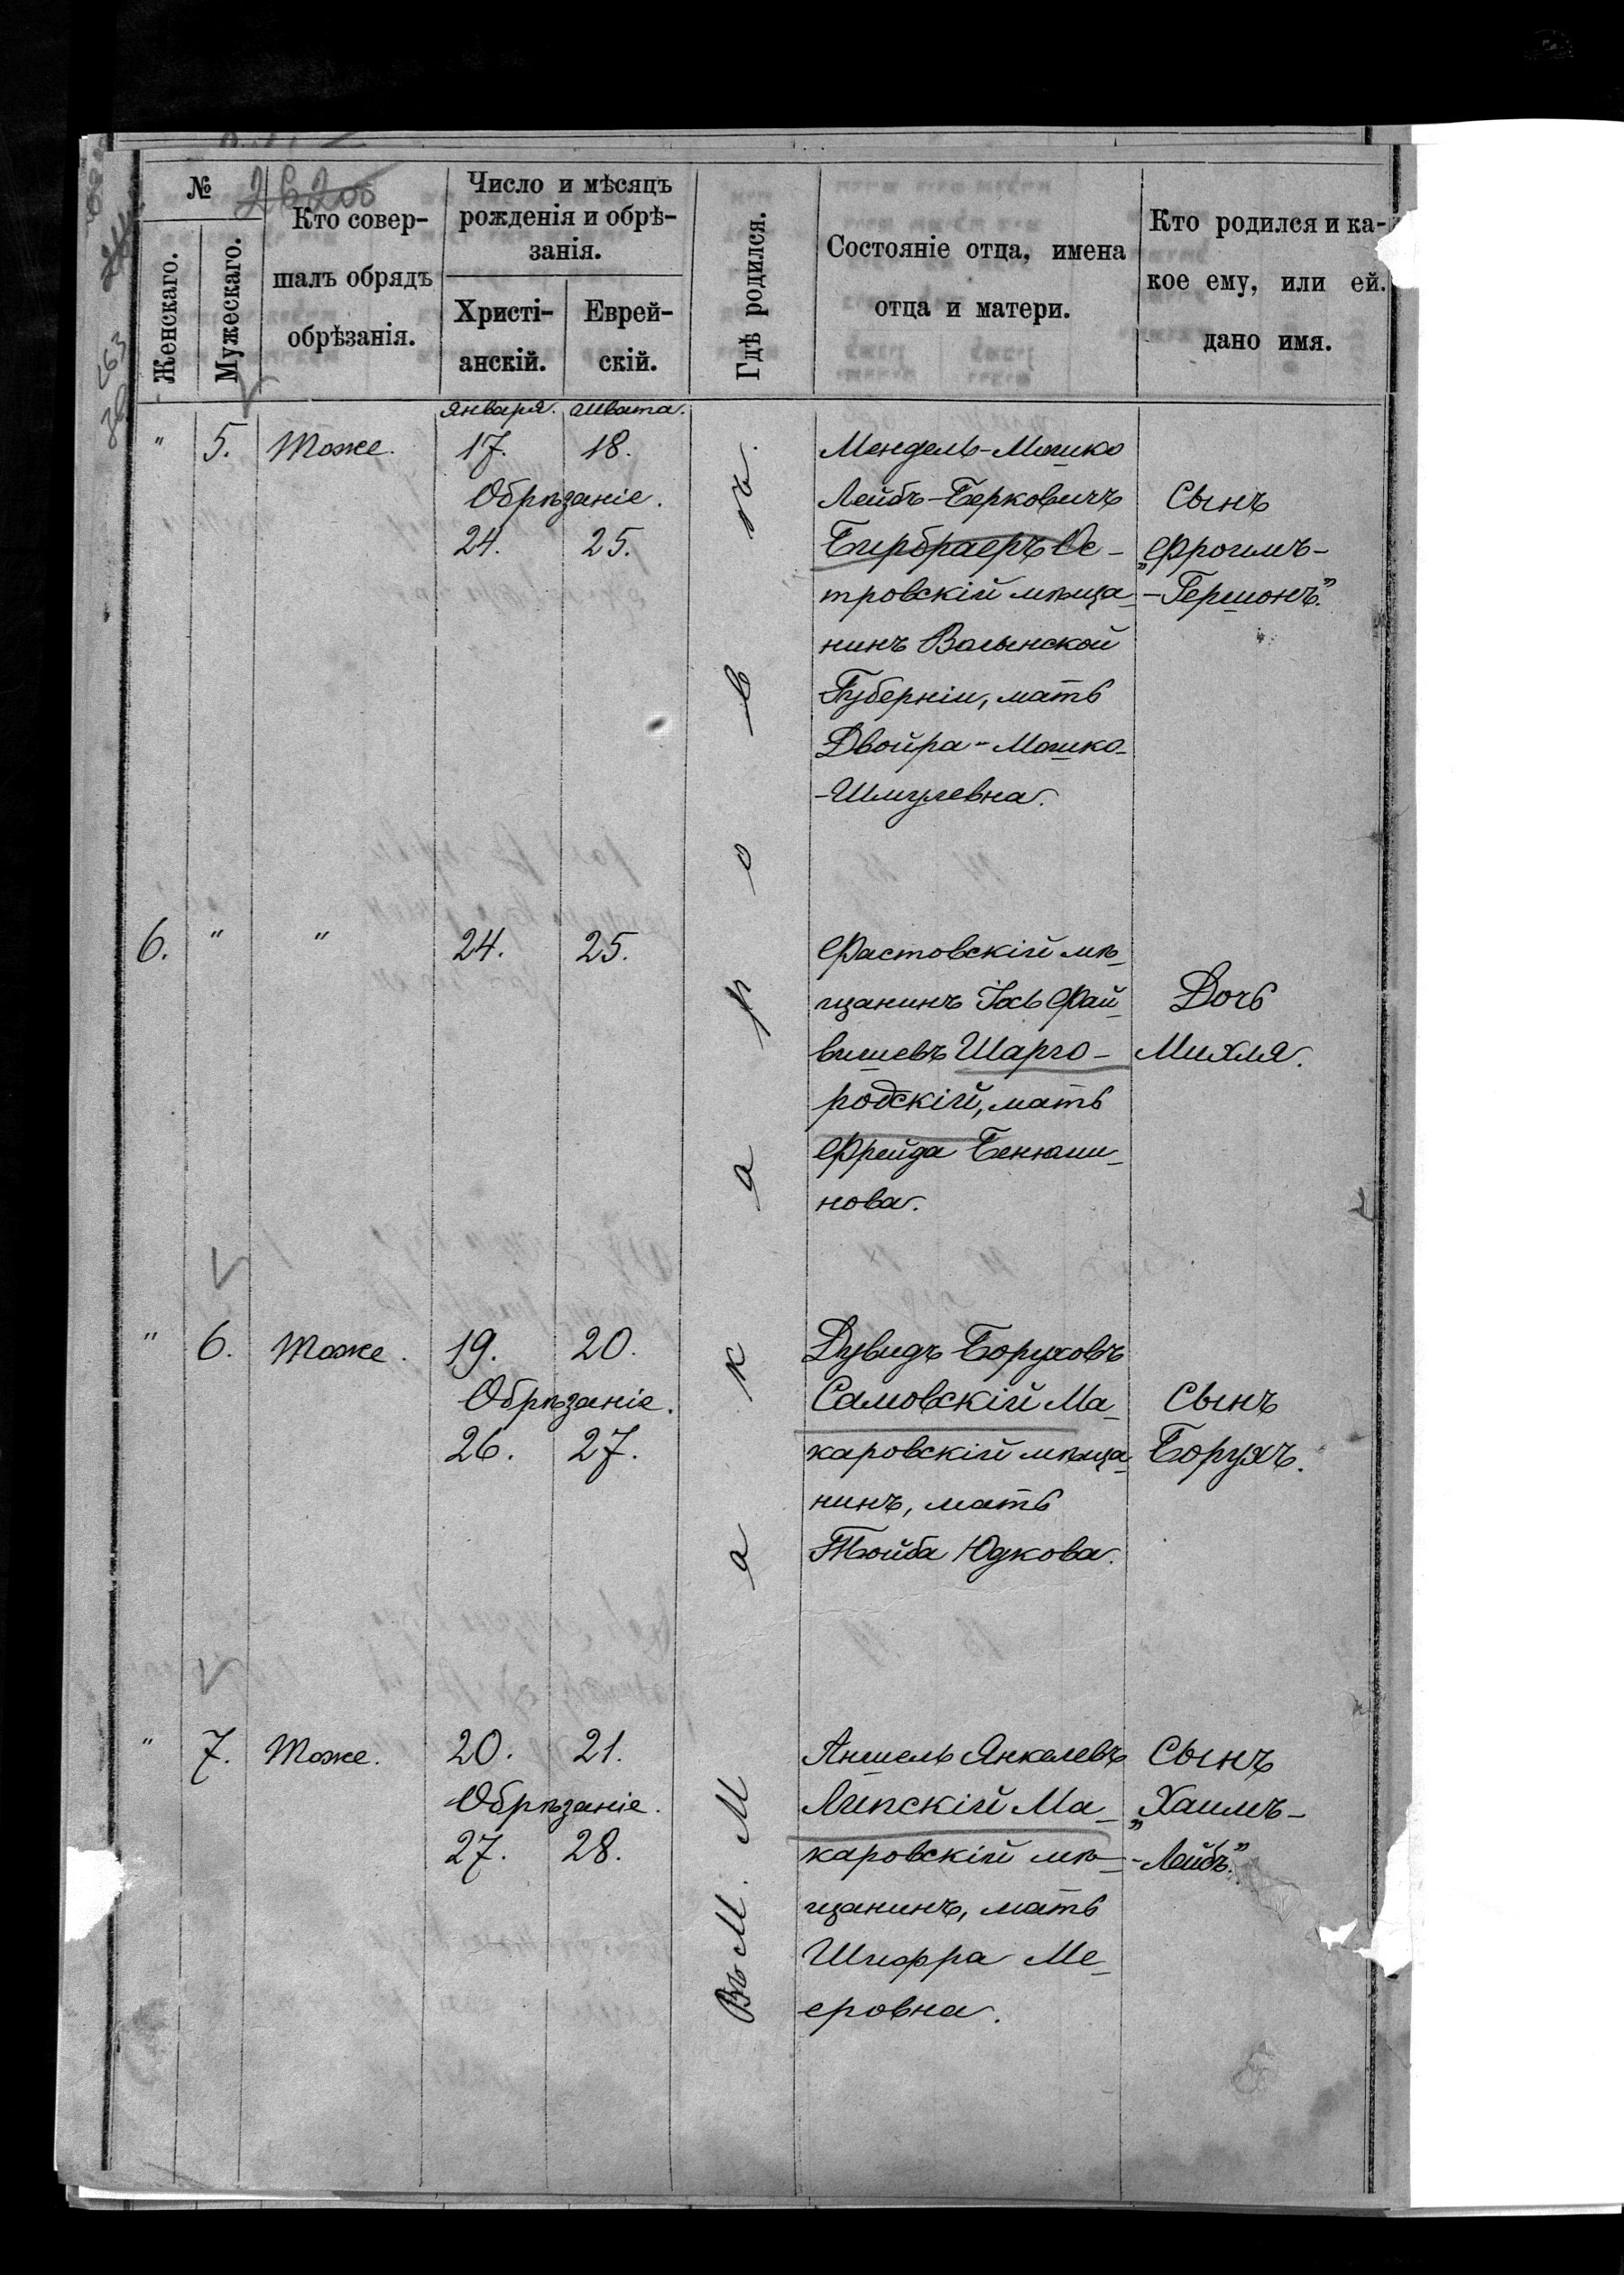 №
Женскаго.
Мужескаго.
Кто совер-
шалъ обрядъ
обрѣзанія.
Число и мѣсяцъ
рожденія и обрѣ-
занія.
Христі-
анскій.
Еврей-
скій.
Гдѣ родился.
Состояніе отца, имена
отца и матери.
Кто родился и ка-
кое ему, или ей.
дано имя.
Января. Швата.
" 5. Тоже. 17. 18.
Обрѣзаніе.
24. 25.
Мендель-Мошко
Лейбъ-Берковичъ
Бирбраеръ Ос-
тровскій мѣща-
нинъ Волынской
Губерніи, мать
Двойра-Мошко-
-Шмулевна.
Сынъ
„Фроимъ-
-Гершонъ".
6. " " 24. 25.
Фастовскій мѣ-
щанинъ Іось Фай-
вишевъ Шарго-
родскій, мать
Фрейда Бенями-
нова.
Дочь
Михля.
" 6. Тоже. 19. 20.
Обрѣзаніе.
26. 27.
Дувидъ Боруховъ
Самовскій Ма-
каровскій мѣща-
нинъ, мать
Тойба Юдкова.
Сынъ
Борухъ.
" 7. Тоже. 20. 21.
Обрѣзаніе.
27. 28.
Аншель Янкелевъ
Липскій Ма-
каровскій мѣ-
щанинъ, мать
Шифра Ме-
еровна.
Сынъ
„Хаимъ-
-Лейбъ".
Въ М. Макаровѣ.